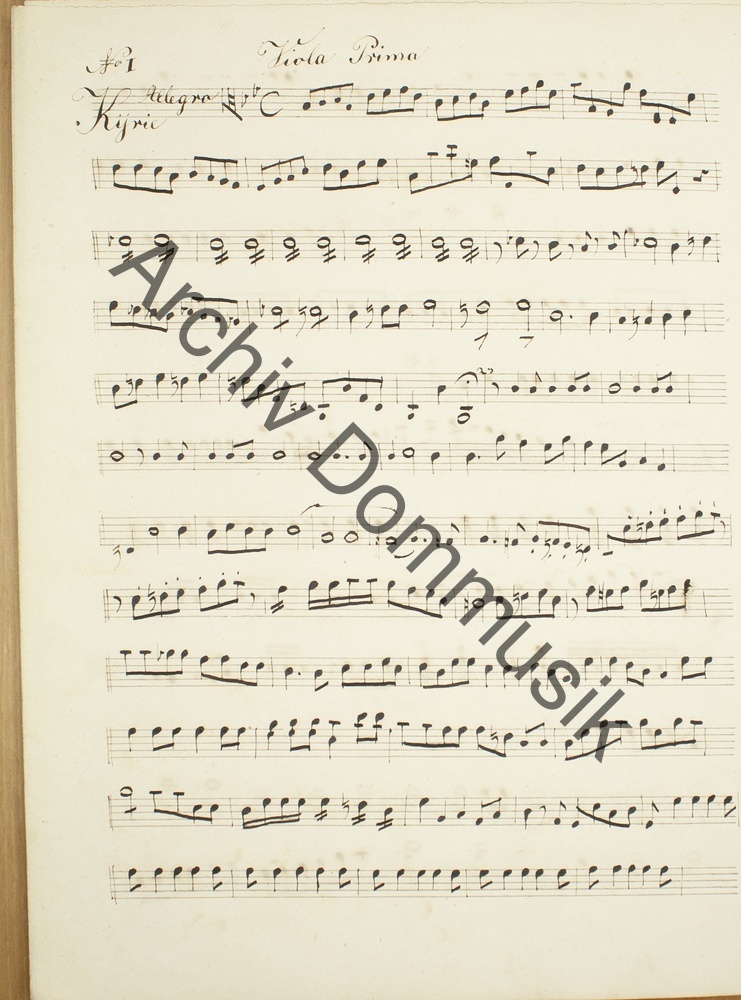 No 1 Viola Prima
Allegro
Kyrie
Archiv Dommusik